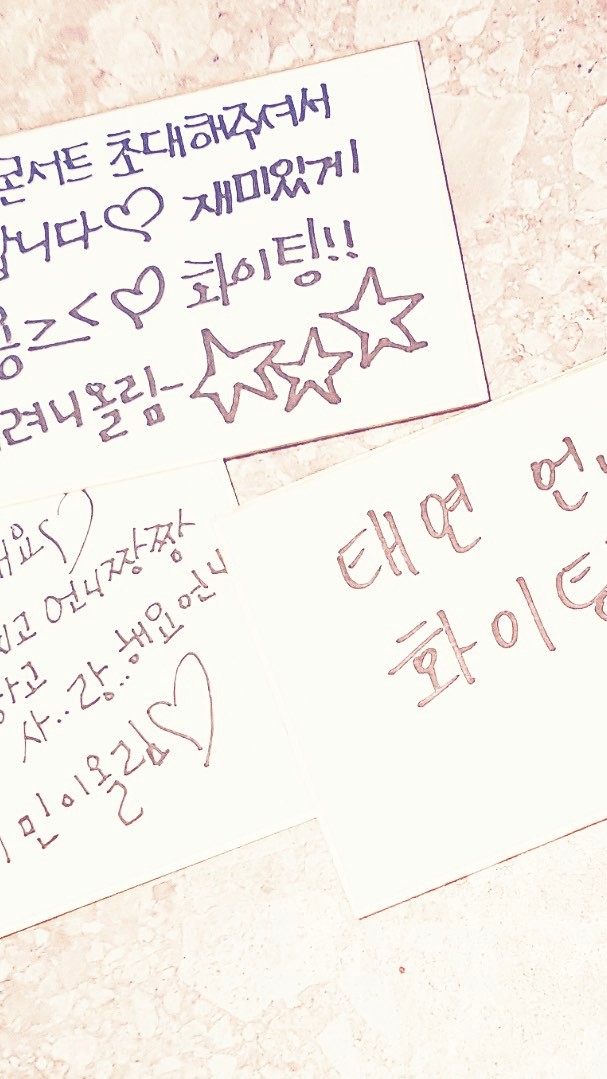 콘서트 초대해주셔서
합니다♡ 재미있게
용≥≤♡ 화이팅!!
려니올림~ ☆☆☆
해요♡
언니짱짱
사..랑..해요언니
민이올림♡
태연 언
화이팅